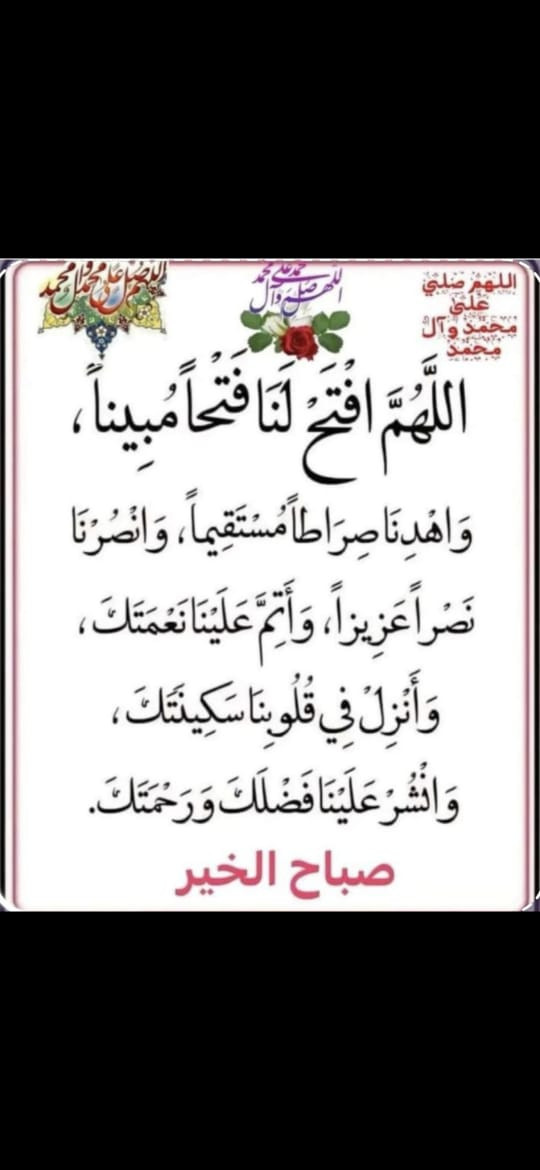 اللهم صل على محمد وآل محمد
اللهم صل على محمد وآل محمد
اللهم صلي
على
محمد وآل
محمد
اللَّهُمَّ افْتَحْ لَنَا فَتْحاً مُبِيناً،
وَاهْدِنَا صِرَاطاً مُسْتَقِيماً، وَانْصُرْنَا
نَصْراً عَزِيزاً، وَأَتِمَّ عَلَيْنَا نَعْمَتَكَ،
وَأَنْزِلْ فِي قُلُوبِنَا سَكِينَتَكَ،
وَانْشُرْ عَلَيْنَا فَضْلَكَ وَرَحْمَتَكَ.
صباح الخير